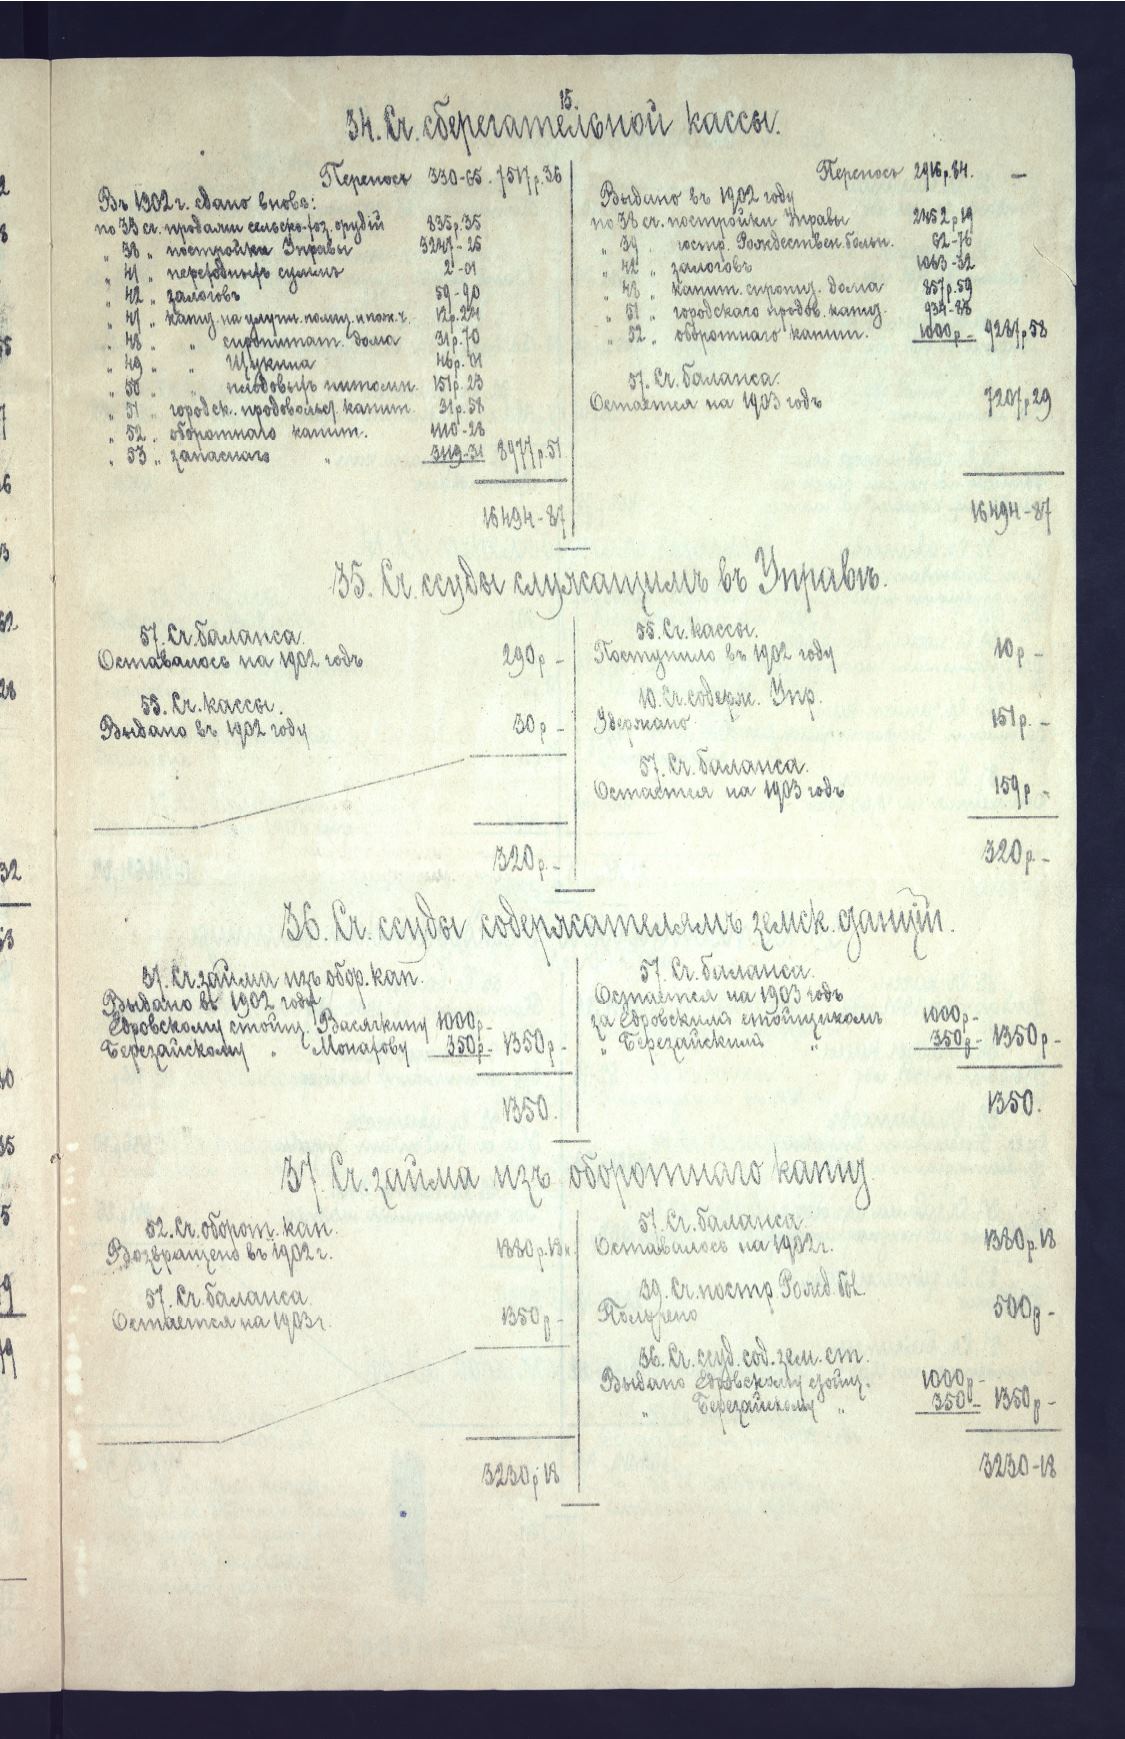 15.
34. Сч. сберегательной кассы.
Переносъ 330-65. 7517р.36
Въ 1902 г. сдано вновь:
по 33 сч. продажи сельско-хоз. орудій 835р.35
" 38 " постройки Управы 3247-25
" 41 " переходныхъ суммъ 2-01
" 42 " залоговъ 59-90
" 47 " капит. на улучш. 12р.24
" 48 " " сиропитат. дома 31р.70
" 49 " " Щукина 46р.01
" 50 " " питомн. 151р.23
" 51 " городск. продовольст. капит. 31р.58
" 52 " оборотнаго капит. 1110-28
" 53 " запаснаго " 3119-31 8977р.51
16494-87
Переносъ 2916р.84. —
Выдано въ 1902 году
по 38 сч. постройки Управы 2452р19
" 39 " постр. Рождествен. больн. 62-76
" 42 " залоговъ 1063-32
" 48 " капит. сиропит. дома 857р.59
" 51 " городскаго продов. капит. 934-88
" 52 " оборотнаго капит. 1000р- 9287р58
57. Сч. баланса.
Остается на 1903 годъ 7207р29
16494-87
35. Сч. ссуды служащимъ въ Управѣ.
57. Сч. баланса.
Оставалось на 1902 годъ 290р-
55. Сч. кассы.
Выдано въ 1902 году 30р-
320р-
55. Сч. кассы.
Поступило въ 1902 году 10р-
10. Сч. содерж. Упр.
Удержано 151р.-
57. Сч. баланса.
Остается на 1903 годъ 159р-
320р-
36. Сч. ссуды содержателямъ земск. станцій.
37. Сч. займа изъ обор. кап.
Выдано въ 1902 году
Едровскому стойщ. Васягину 1000р-
Березайскому " Монахову 350р- 1350р-
1350.
57. Сч. баланса.
Остается на 1903 годъ
за Едровскимъ стойщикомъ 1000р-
" Березайскимъ " 350р- 1350р-
1350.
37. Сч. займа изъ оборотнаго капит.
52. Сч. оборот. кап.
Возвращено въ 1902 г. 1880р.18к.
57. Сч. баланса
Остается на 1903 г. 1350р-
3230р18
57. Сч. баланса
Оставалось на 1902 г. 1380р18
39. Сч. постр. Рожд. бол.
Получено 500р-
36. Сч. ссуд. сод. зем. ст.
Выдано Едровскому стойщ. 1000р-
" Березайскому " 350- 1350р-
3230-18